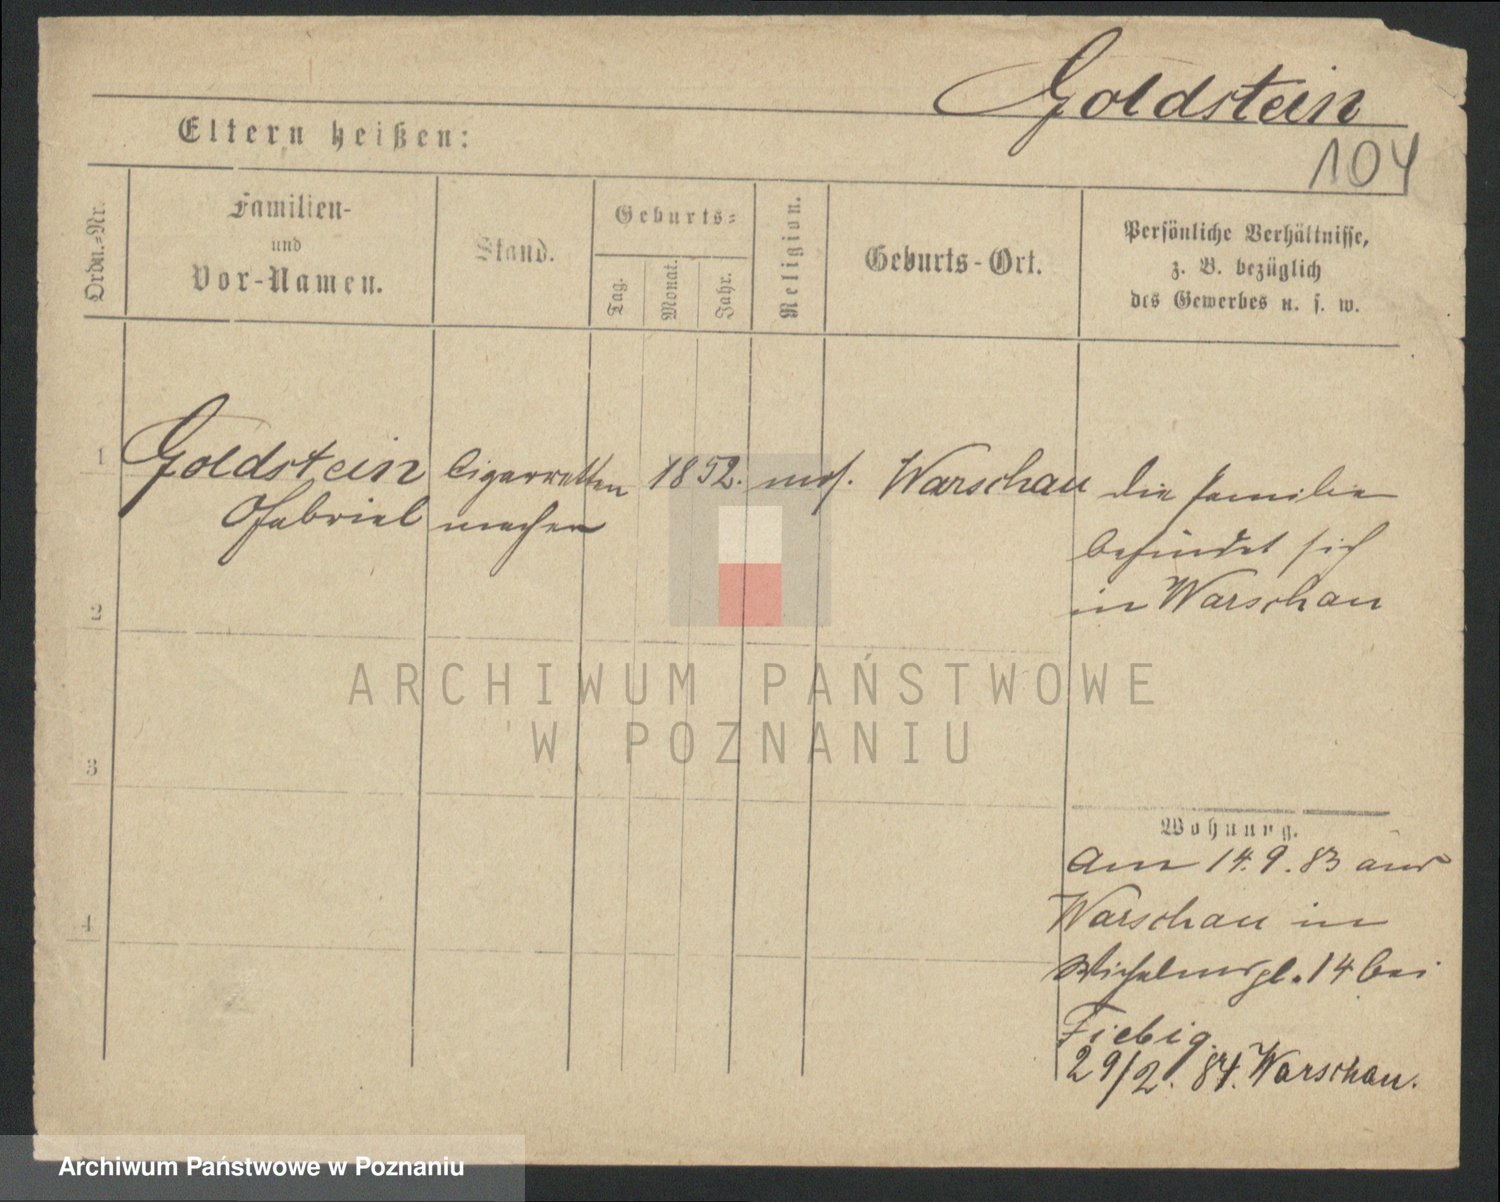 Goldstein
104
Eltern heißen:
Ordn.=Nr.
Familien-
und
Vor-Namen.
Stand.
Geburts=
Tag.
Monat.
Jahr.
Religion.
Geburts-Ort.
Persönliche Verhältnisse,
z. B. bezüglich
des Gewerbes u. s. w.
1 Goldstein Cigarretten 1852. mos. Warschau die Familie
Gabriel macher
befindet sich
in Warschau
2
ARCHIWUM PAŃSTWOWE
W POZNANIU
3
Wohnung.
am 14.9.83 aus
Warschau in
4
Wilhelmspl. 14 bei
Fiebig.
29/2. 84. Warschau.
Archiwum Państwowe w Poznaniu